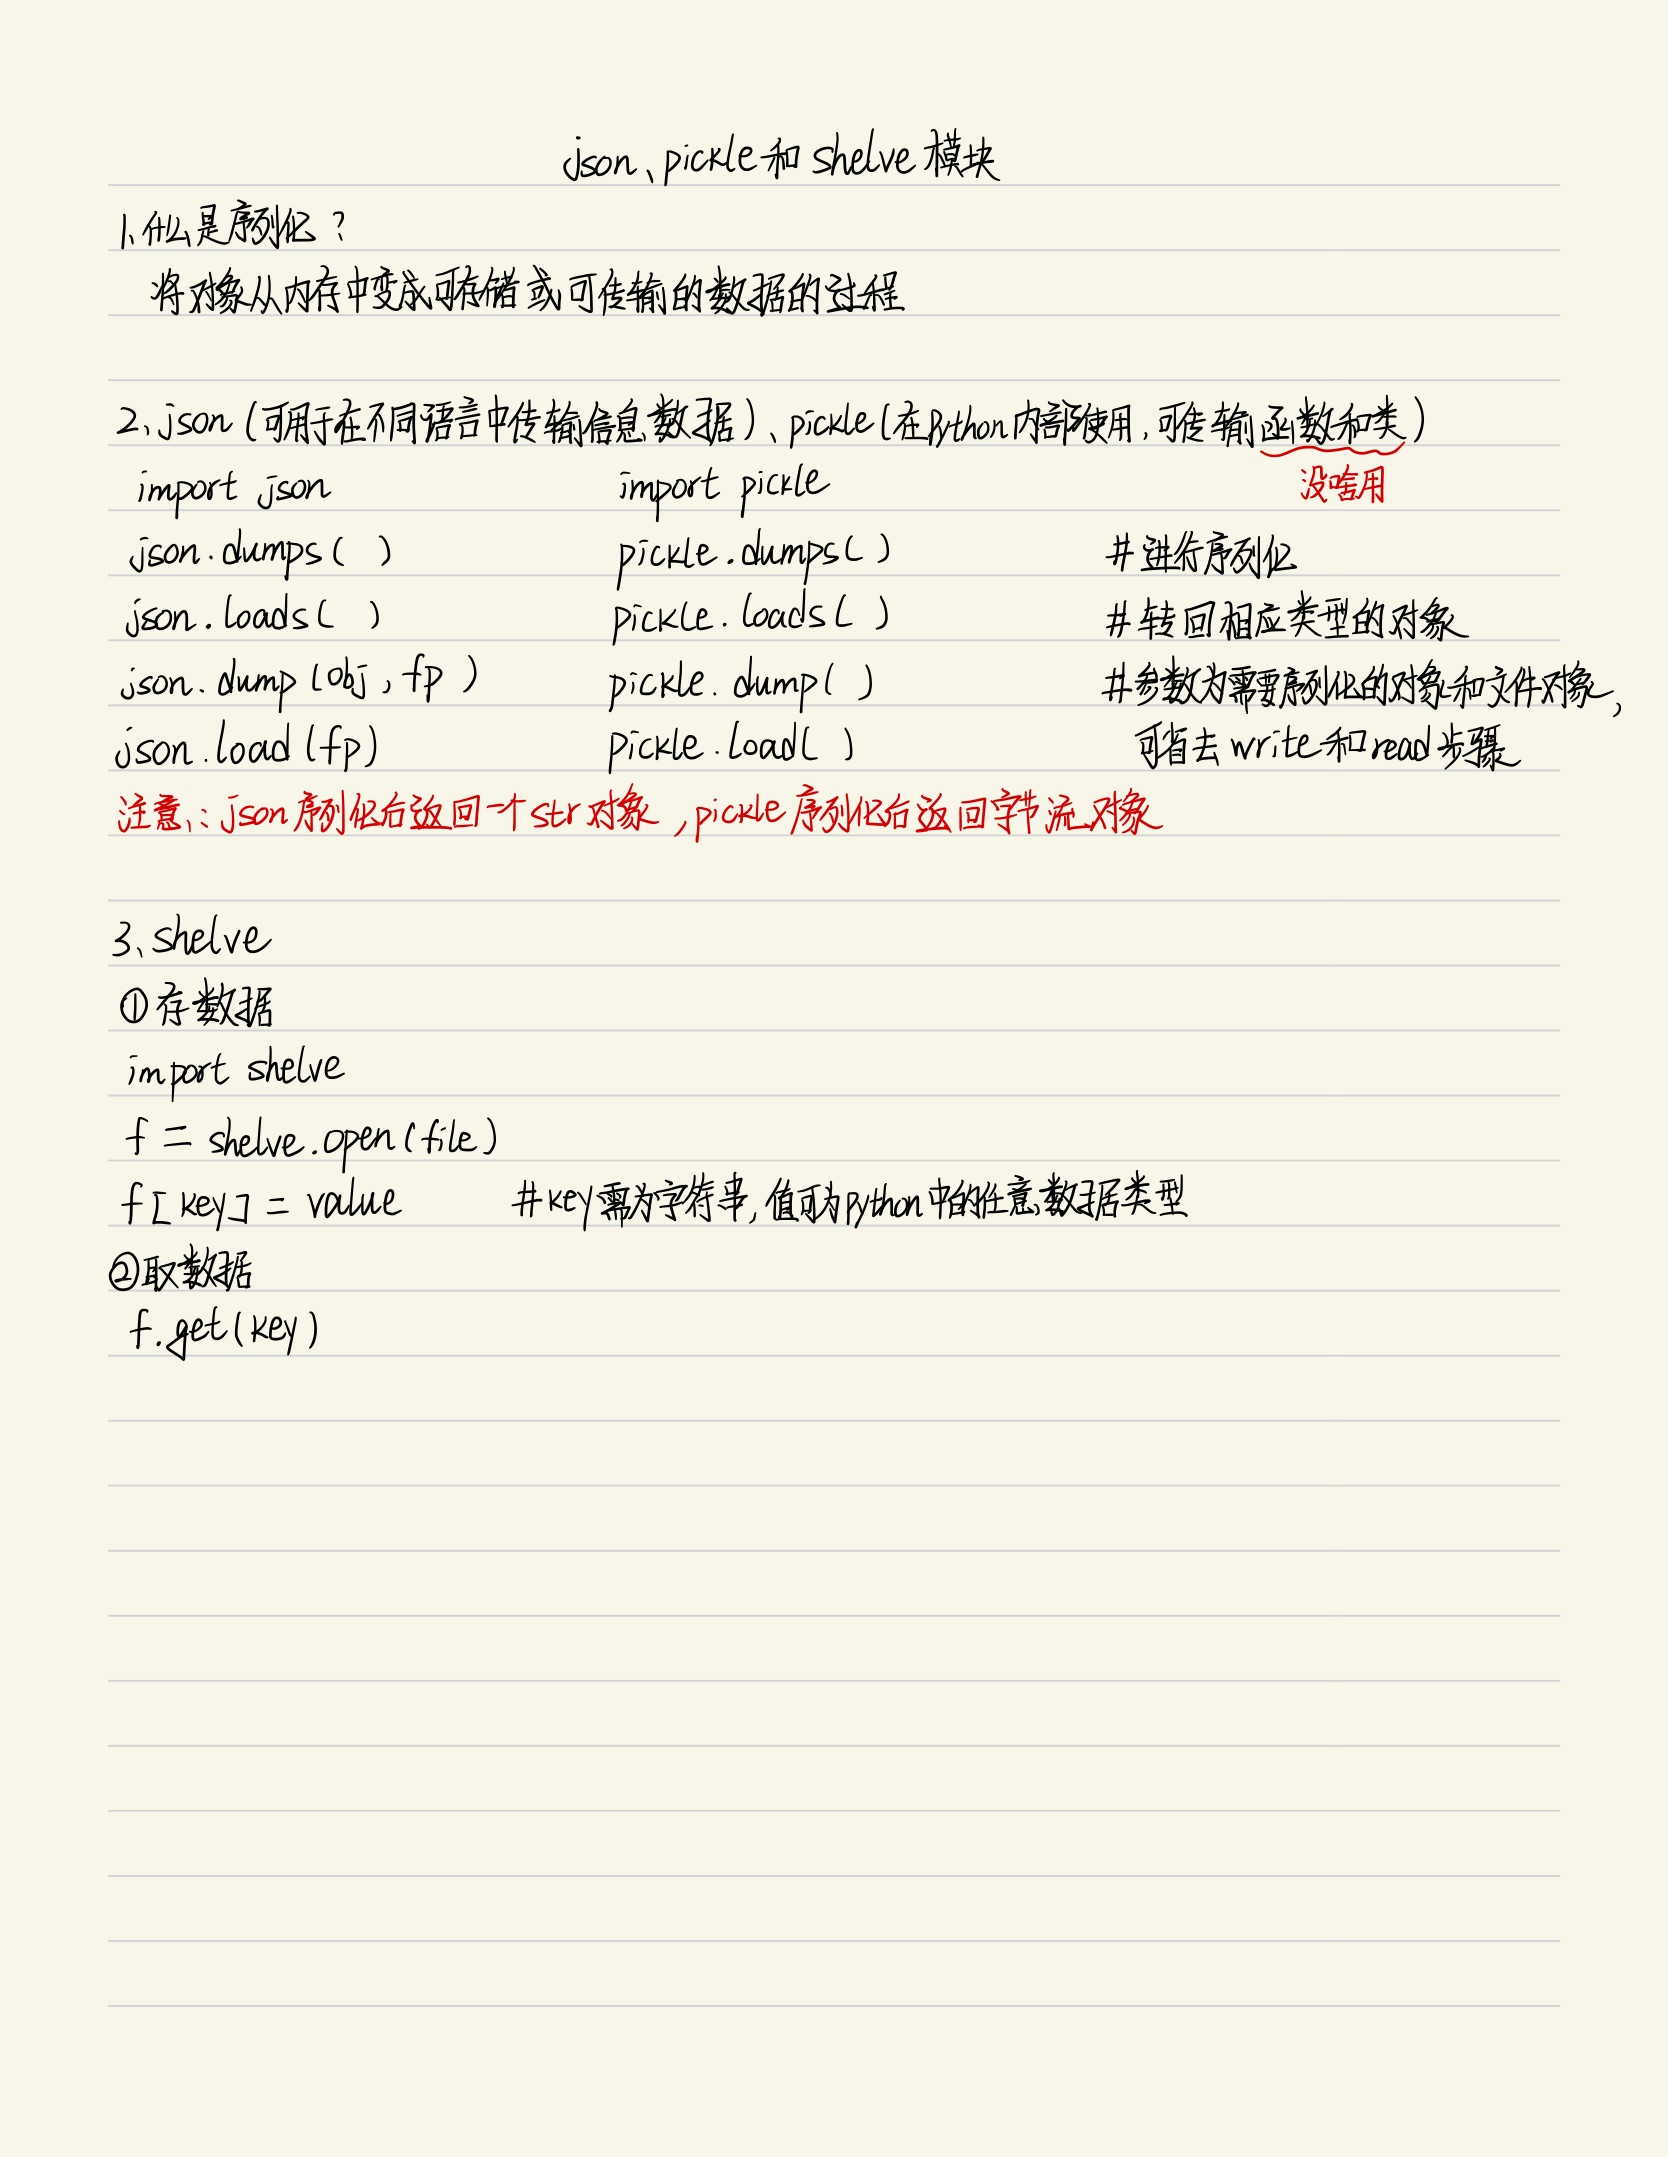 json、pickle和shelve模块
1、什么是序列化？
将对象从内存中变成可存储或可传输的数据的过程
2、json（可用于在不同语言中传输信息数据）、pickle（在Python内部使用，可传输函数和类）
import json import pickle 没啥用
json.dumps( ) pickle.dumps( ) #进行序列化
json.loads( ) pickle.loads( ) #转回相应类型的对象
json.dump(obj, fp ) pickle.dump( ) #参数为需要序列化的对象和文件对象，
json.load(fp) pickle.load( ) 可省去write和read步骤
注意：json序列化后返回一个str对象，pickle序列化后返回字节流对象
3、shelve
①存数据
import shelve
f = shelve.open(file)
f[key] = value #key需为字符串，值可为python中的任意数据类型
②取数据
f.get(key)